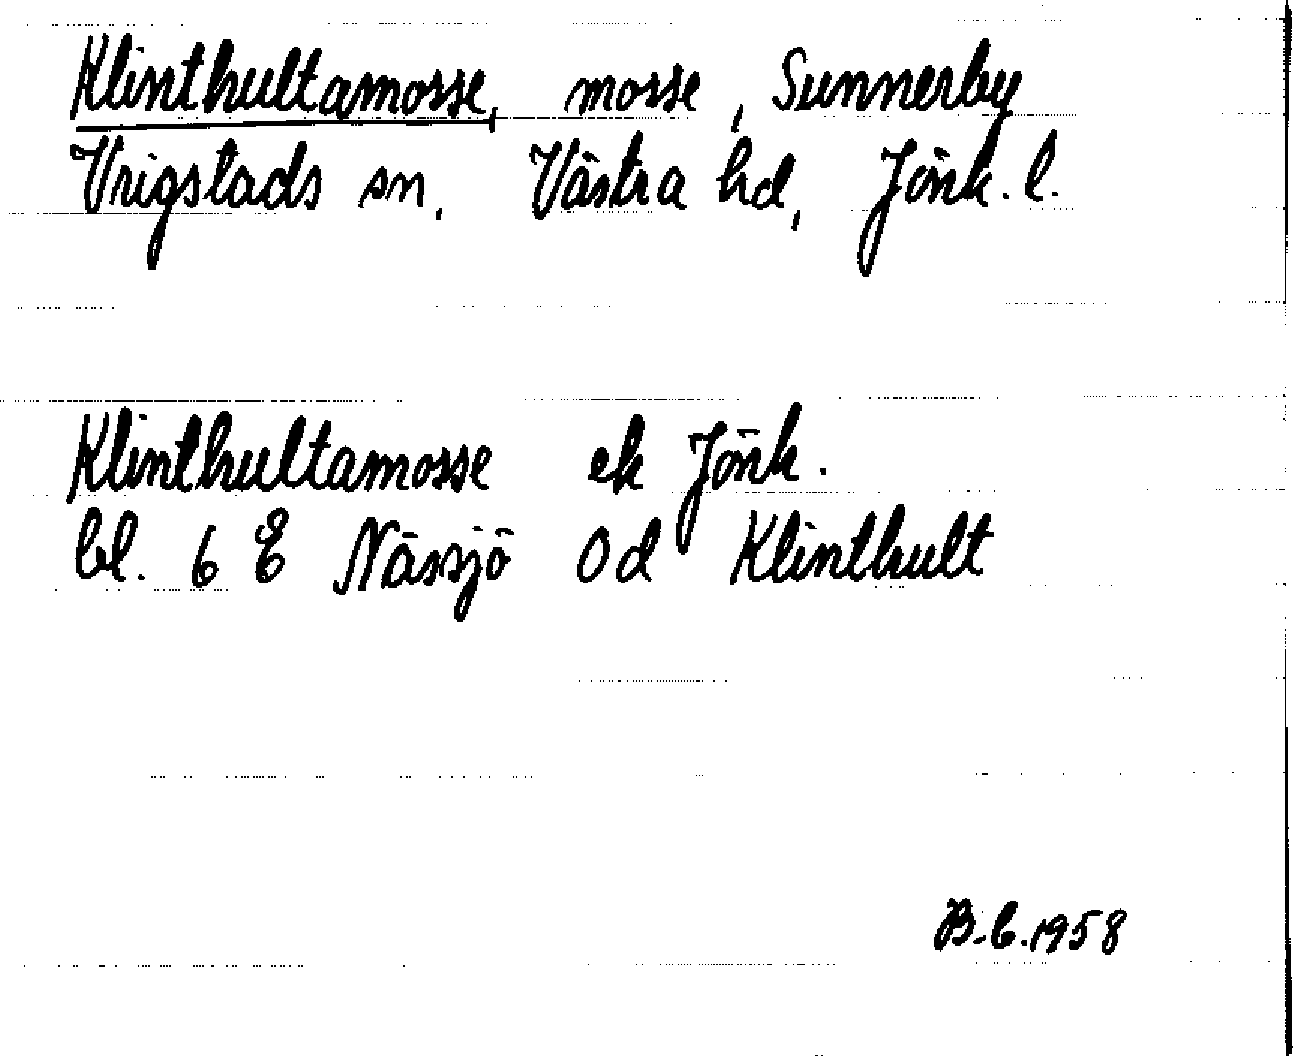 Klinthultamosse, mosse, Sunnerby
Vrigstads sn, Västra hd, Jönk. l.
Klinthultamosse ek Jönk.
bl. 6 E Nässjö Od Klinthult
B.C. 1958